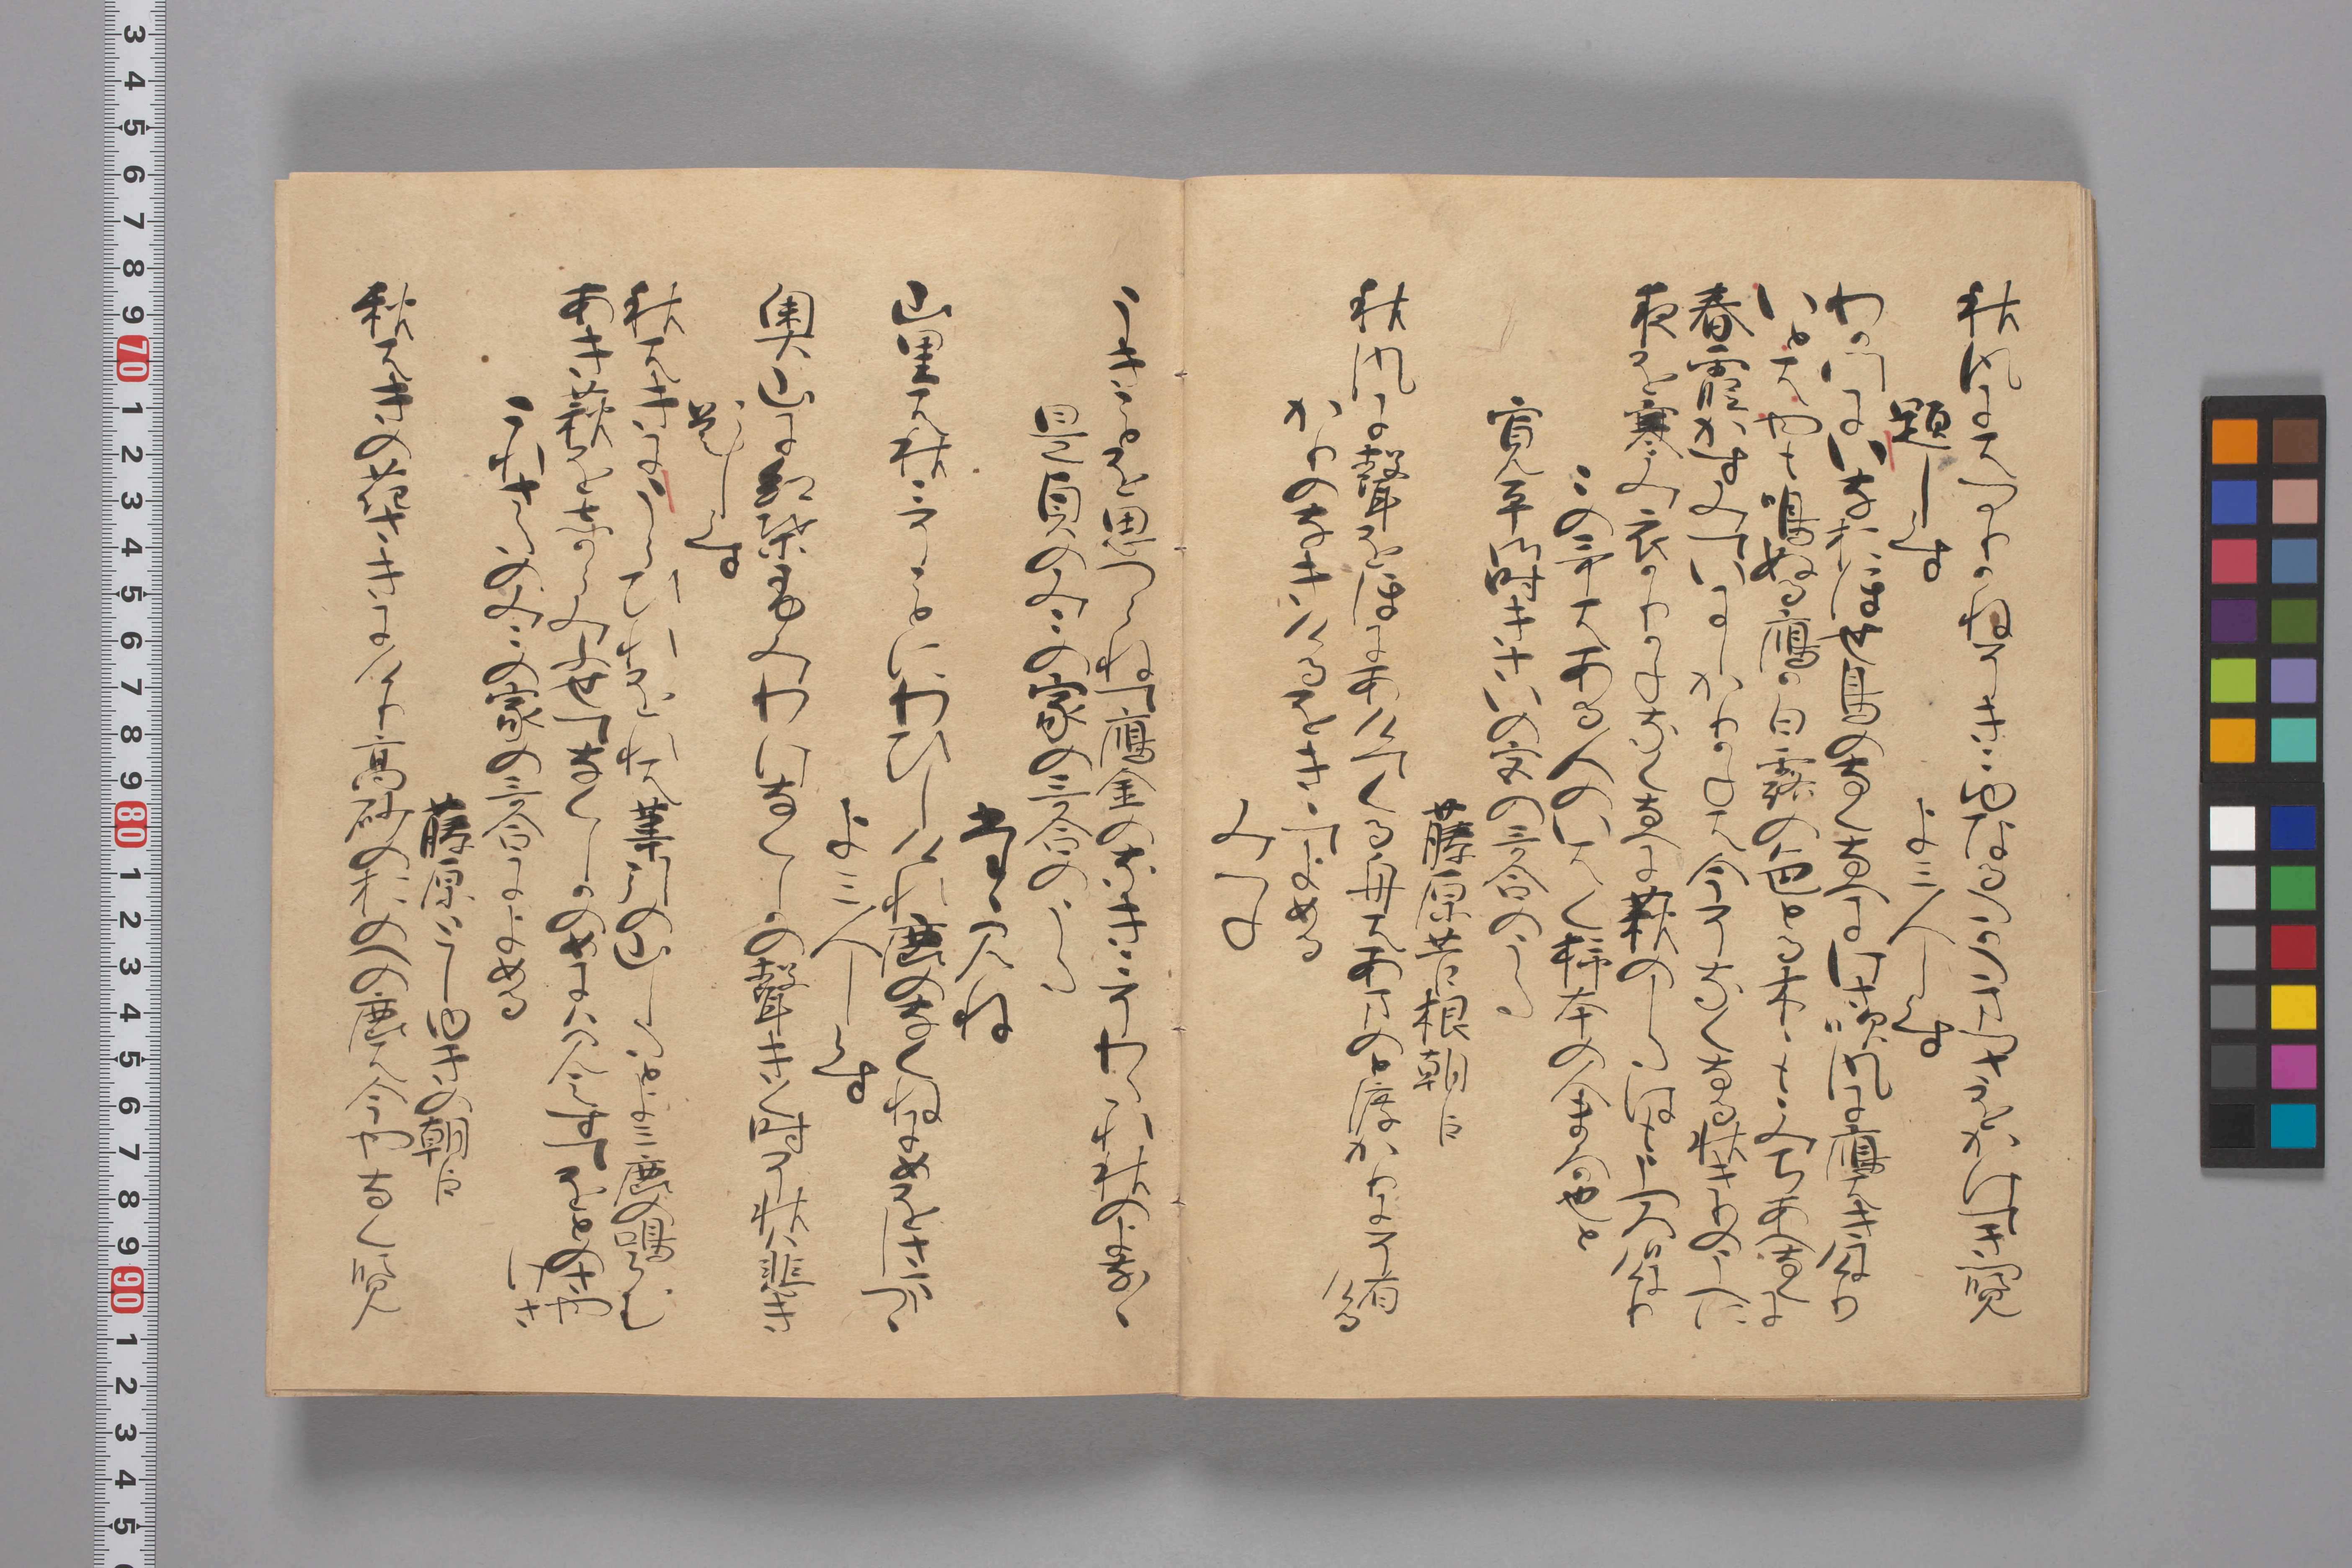 秋風にはつかりかねそきこゆなるたかたまつさをかけてきつ覧
題しらす　よみ人しらす
わかゝとにいなおほせ鳥のなくなへにけさ吹風に鴈はきにけり
いとはやも鳴ぬる鴈か白露の色とる木ゝももみちあへなくに
春霞かすみていにしかりかねは今そなくなる秋きりのうへに
夜を寒み衣かりかねなくなへに萩のしたはもうつろひにけり
この哥はある人のいはく柿本の人まろか也と
寛平御時きさいの宮の哥合のうた
藤原菅根朝臣
秋風に聲をほにあけてくる舟はあまのと渡るかりにそ有ける
かりのなきけるをきゝてよめる
みつね
うきことを思つらねて鴈金のなきこそわたれ秋のよな〱
是貞のみこの家の哥合のうた
たゝみね
山里は秋こそことにわひしけれ鹿のなくねにめをさましつゝ
よみ人しらす
奥山に紅葉ふみわけなくしかの聲きく時そ秋は悲き
題しらす
秋はきにうらひれをれは葦引の山したとよみ鹿の鳴らむ
あき萩をしからみふせてなくしかのめには見えすてをとのさやけさ
これさたのみこの家の哥合によめる
藤原としゆきの朝臣
秋はきの花さきにけり高砂のおのへの鹿は今やなく覧